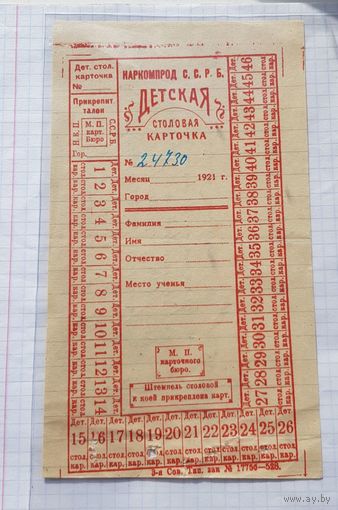 Дет. стол.
карточка
№
Прикрепит
талон
Н.К.П.
М. П.
карт.
Бюро
С.С.Р.Б.
Гор.
НАРКОМПРОД С. С. Р. Б.
ДЕТСКАЯ
СТОЛОВАЯ
КАРТОЧКА
№ 24730
Месяц 1921 г.
Город
Фамилия
Имя
Отчество
Место ученья
М. П.
карточного
бюро.
Штемпель столовой
к коей прикреплена карт.
Дет. 1 стол. кар.
Дет. 2 стол. кар.
Дет. 3 стол. кар.
Дет. 4 стол. кар.
Дет. 5 стол. кар.
Дет. 6 стол. кар.
Дет. 7 стол. кар.
Дет. 8 стол. кар.
Дет. 9 стол. кар.
Дет. 10 стол. кар.
Дет. 11 стол. кар.
Дет. 12 стол. кар.
Дет. 13 стол. кар.
Дет. 14 стол. кар.
Дет. Дет. Дет. Дет. Дет. Дет. Дет. Дет. Дет. Дет. Дет. Дет.
15 16 17 18 19 20 21 22 23 24 25 26
стол. стол. стол. стол. стол. стол. стол. стол. стол. стол. стол. стол.
кар. кар. кар. кар. кар. кар. кар. кар. кар. кар. кар. кар.
Дет. 27 стол. кар.
Дет. 28 стол. кар.
Дет. 29 стол. кар.
Дет. 30 стол. кар.
Дет. 31 стол. кар.
Дет. 32 стол. кар.
Дет. 33 стол. кар.
Дет. 34 стол. кар.
Дет. 35 стол. кар.
Дет. 36 стол. кар.
Дет. 37 стол. кар.
Дет. 38 стол. кар.
Дет. 39 стол. кар.
Дет. 40 стол. кар.
Дет. 41 стол. кар.
Дет. 42 стол. кар.
Дет. 43 стол. кар.
Дет. 44 стол. кар.
Дет. 45 стол. кар.
Дет. 46 стол. кар.
3-я Сов. Тип. зак № 17750—528.
www.ay.by